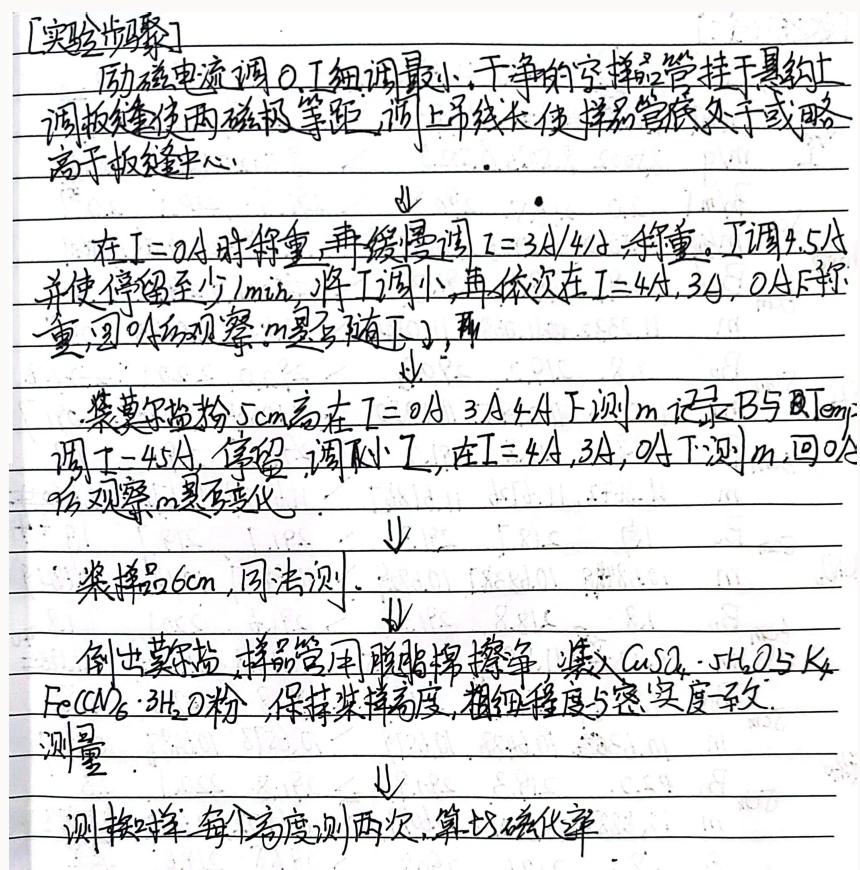 [实验步骤]
励磁电流调0.I细调最小.干净的空样品管挂于悬钩上
调极缝使两磁极等距,调上吊线长使样品管底处于或略
高于极缝中心.
↓
在I=0A时称重,再缓慢调I=3A/4A,称重。I调4.5A
并使停留至少1min,将I调小,再依次在I=4A,3A,0A下称
重,回0A后观察m是否随I
↓
装莫尔盐粉5cm高在I=0A 3A 4A下测m记录B与Temp
调I=4.5A,停留,调小I,在I=4A,3A,0A下测m,回0A
后观察m是否变化.
↓
装样品6cm,同法测.
↓
倒出莫尔盐,样品管用脱脂棉擦净,装入CuSO4·5H2O与K4
Fe(CN)6·3H2O粉,保持装样高度,粗细程度与密实度一致.
测量.
↓
测 样每个高度测两次,算 磁化率